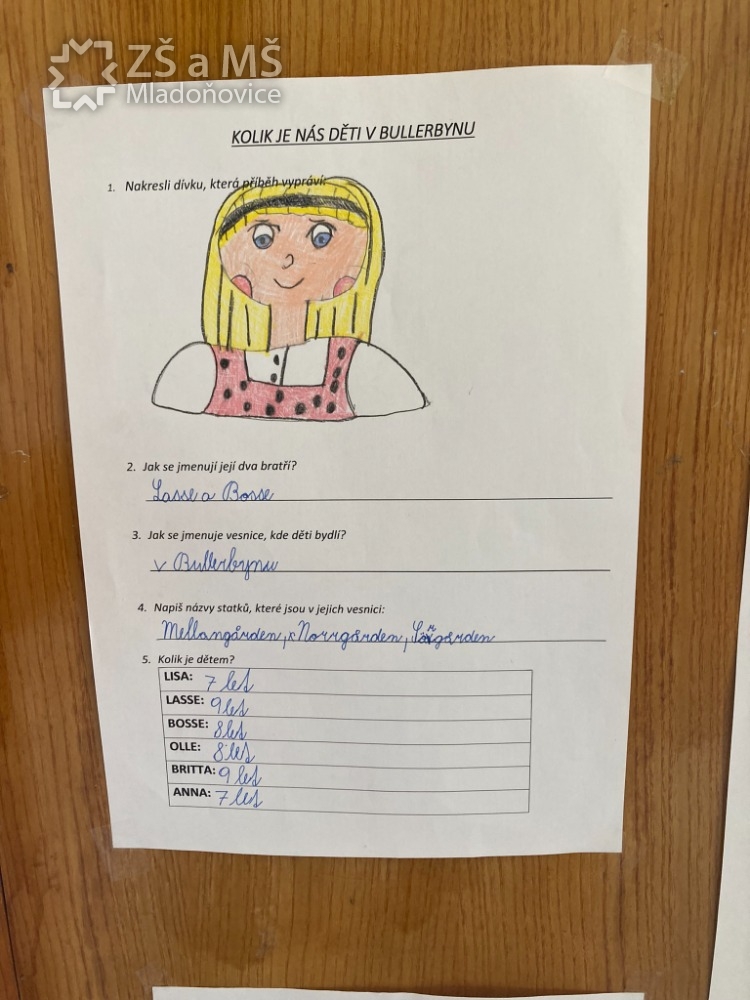 ZŠ a MŠ
Mladoňovice
KOLIK JE NÁS DĚTI V BULLERBYNU
1. Nakresli dívku, která příběh vypráví:
2. Jak se jmenují její dva bratří?
Lasse a Bosse
3. Jak se jmenuje vesnice, kde děti bydlí?
v Bullerbynu
4. Napiš názvy statků, které jsou v jejich vesnici:
Mellangården, Norrgården,
5. Kolik je dětem?
LISA: 7 let
LASSE: 9 let
BOSSE: 8 let
OLLE: 8 let
BRITTA: 9 let
ANNA: 7 let